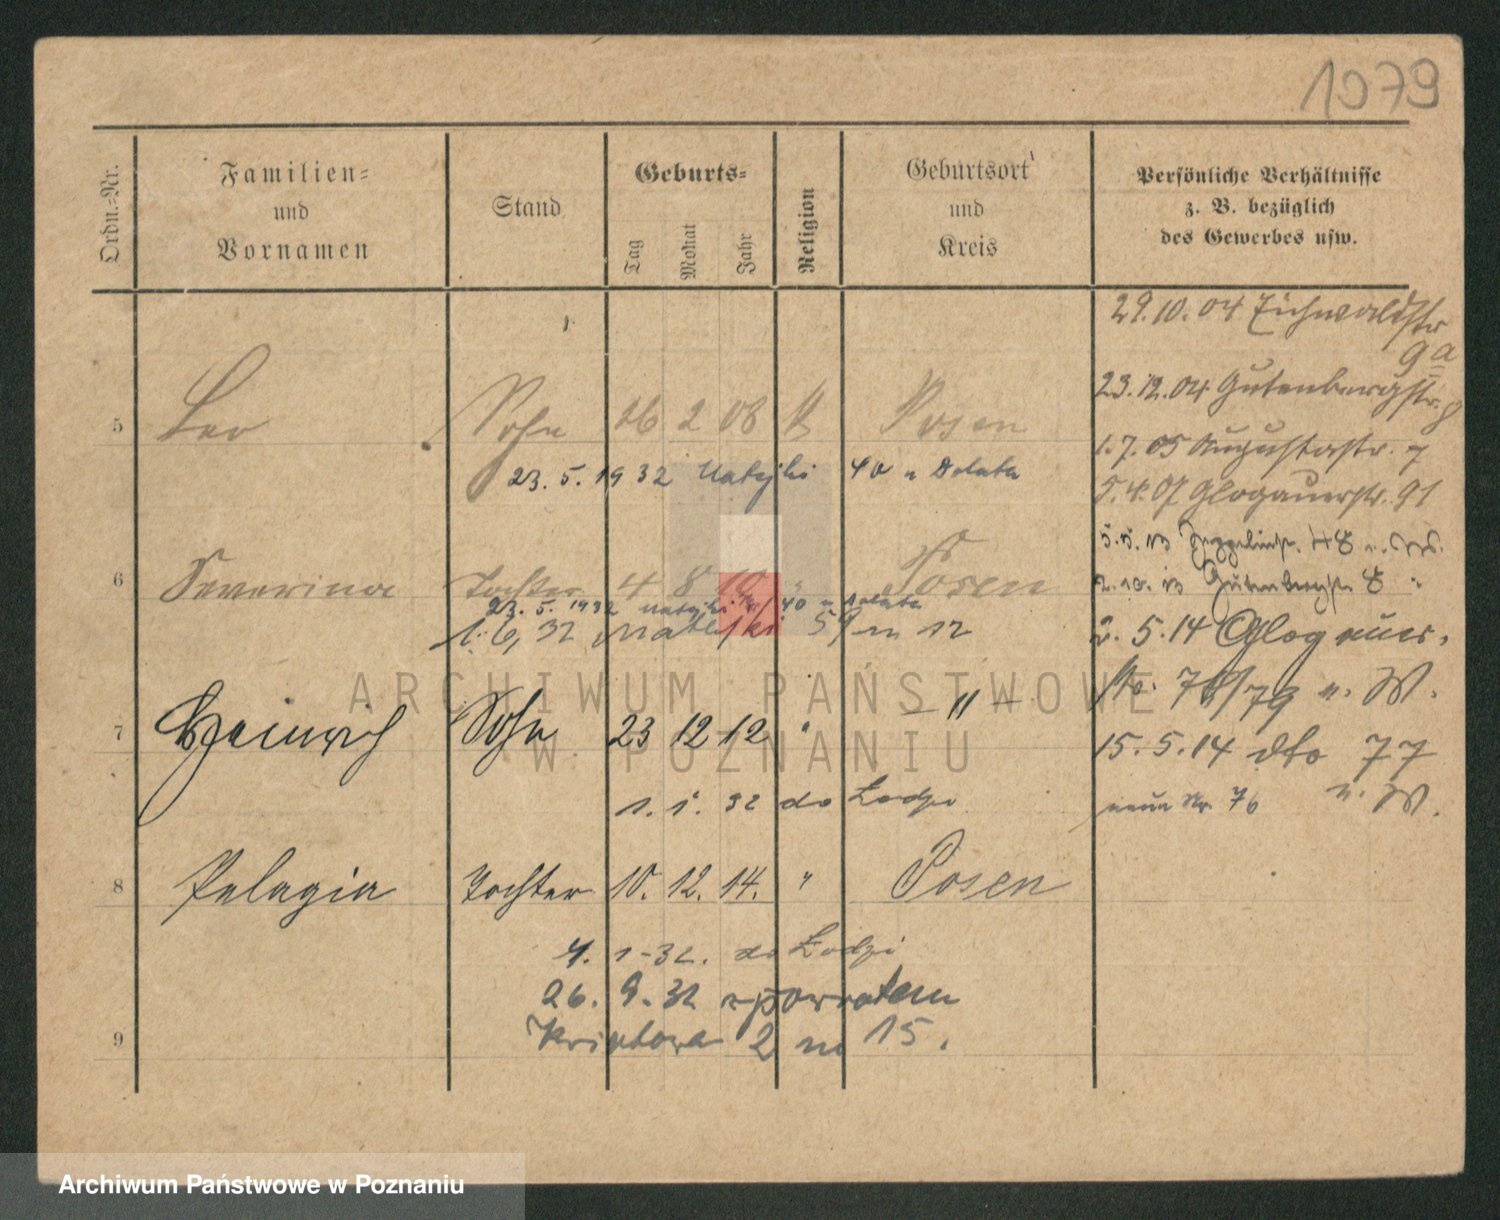 1079
Ordn.-Nr.
Familien-
und
Vornamen
Stand
Geburts-
Tag
Monat
Jahr
Religion
Geburtsort
und
Kreis
Persönliche Verhältnisse
z. B. bezüglich
des Gewerbes usw.
29.10.04 Eichwaldstr
9a
23.12.04 Gutenbergstr. 8
5 Leo Sohn 26 2 08 K Posen
1.7.05 Augustastr. 7
23. 5. 1932 Matejki 40 u Dolata
5.4.07 Glogauerstr. 91
5.5.13 Zeppelinstr. 48
6 Severina Tochter 4 8 10 " Posen
2.10.13 Gutenbergstr. 8 "
23. 5. 1932 Matejki 40 u Dolata
1. 6. 32 Matejki 59 m 12
2. 5.14 Glogauer-
ARCHIWUM PAŃSTWOWE
W POZNANIU
Str. 78/79 u. W.
7 Heinrich Sohn 23 12 12 " — " —
15.5.14 dto 77
u. W.
1. 1. 32 do Łodzi
neue Nr. 76
8 Pelagia Tochter 10. 12. 14. " Posen
4. 1-32. do Łodzi
26. 9. 32 z powrotem
9
2 m 15.
Archiwum Państwowe w Poznaniu